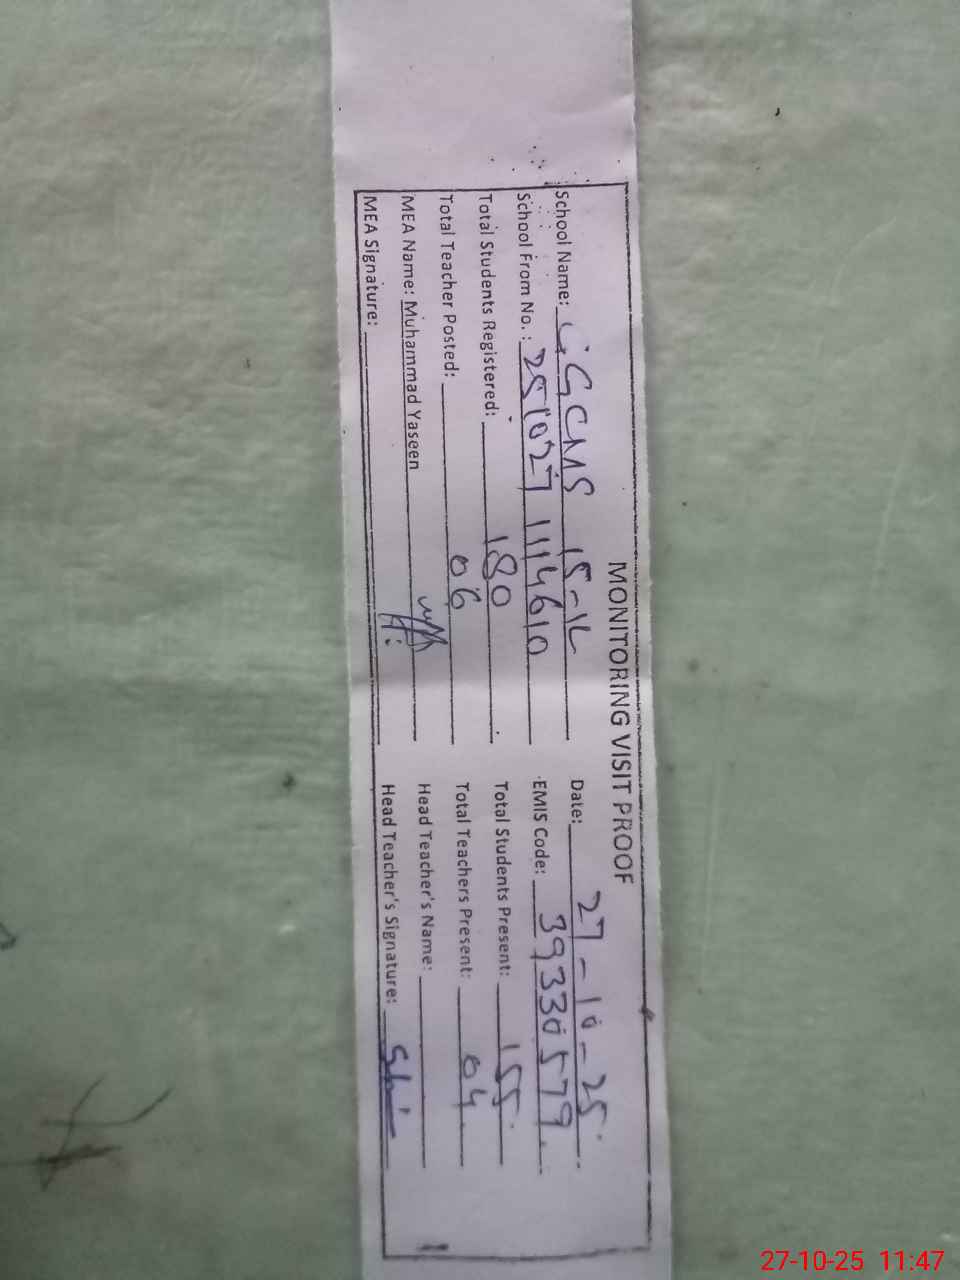 MONITORING VISIT PROOF
School Name: GGCMS 15-1L Date: 27-10-25
School From No.: 251027 1114610 EMIS Code: 39330579
Total Students Registered: 180 Total Students Present: 155
Total Teacher Posted: 06 Total Teachers Present: 04
MEA Name: Muhammad Yaseen Head Teacher's Name:
MEA Signature: Head Teacher's Signature:
27-10-25 11:47